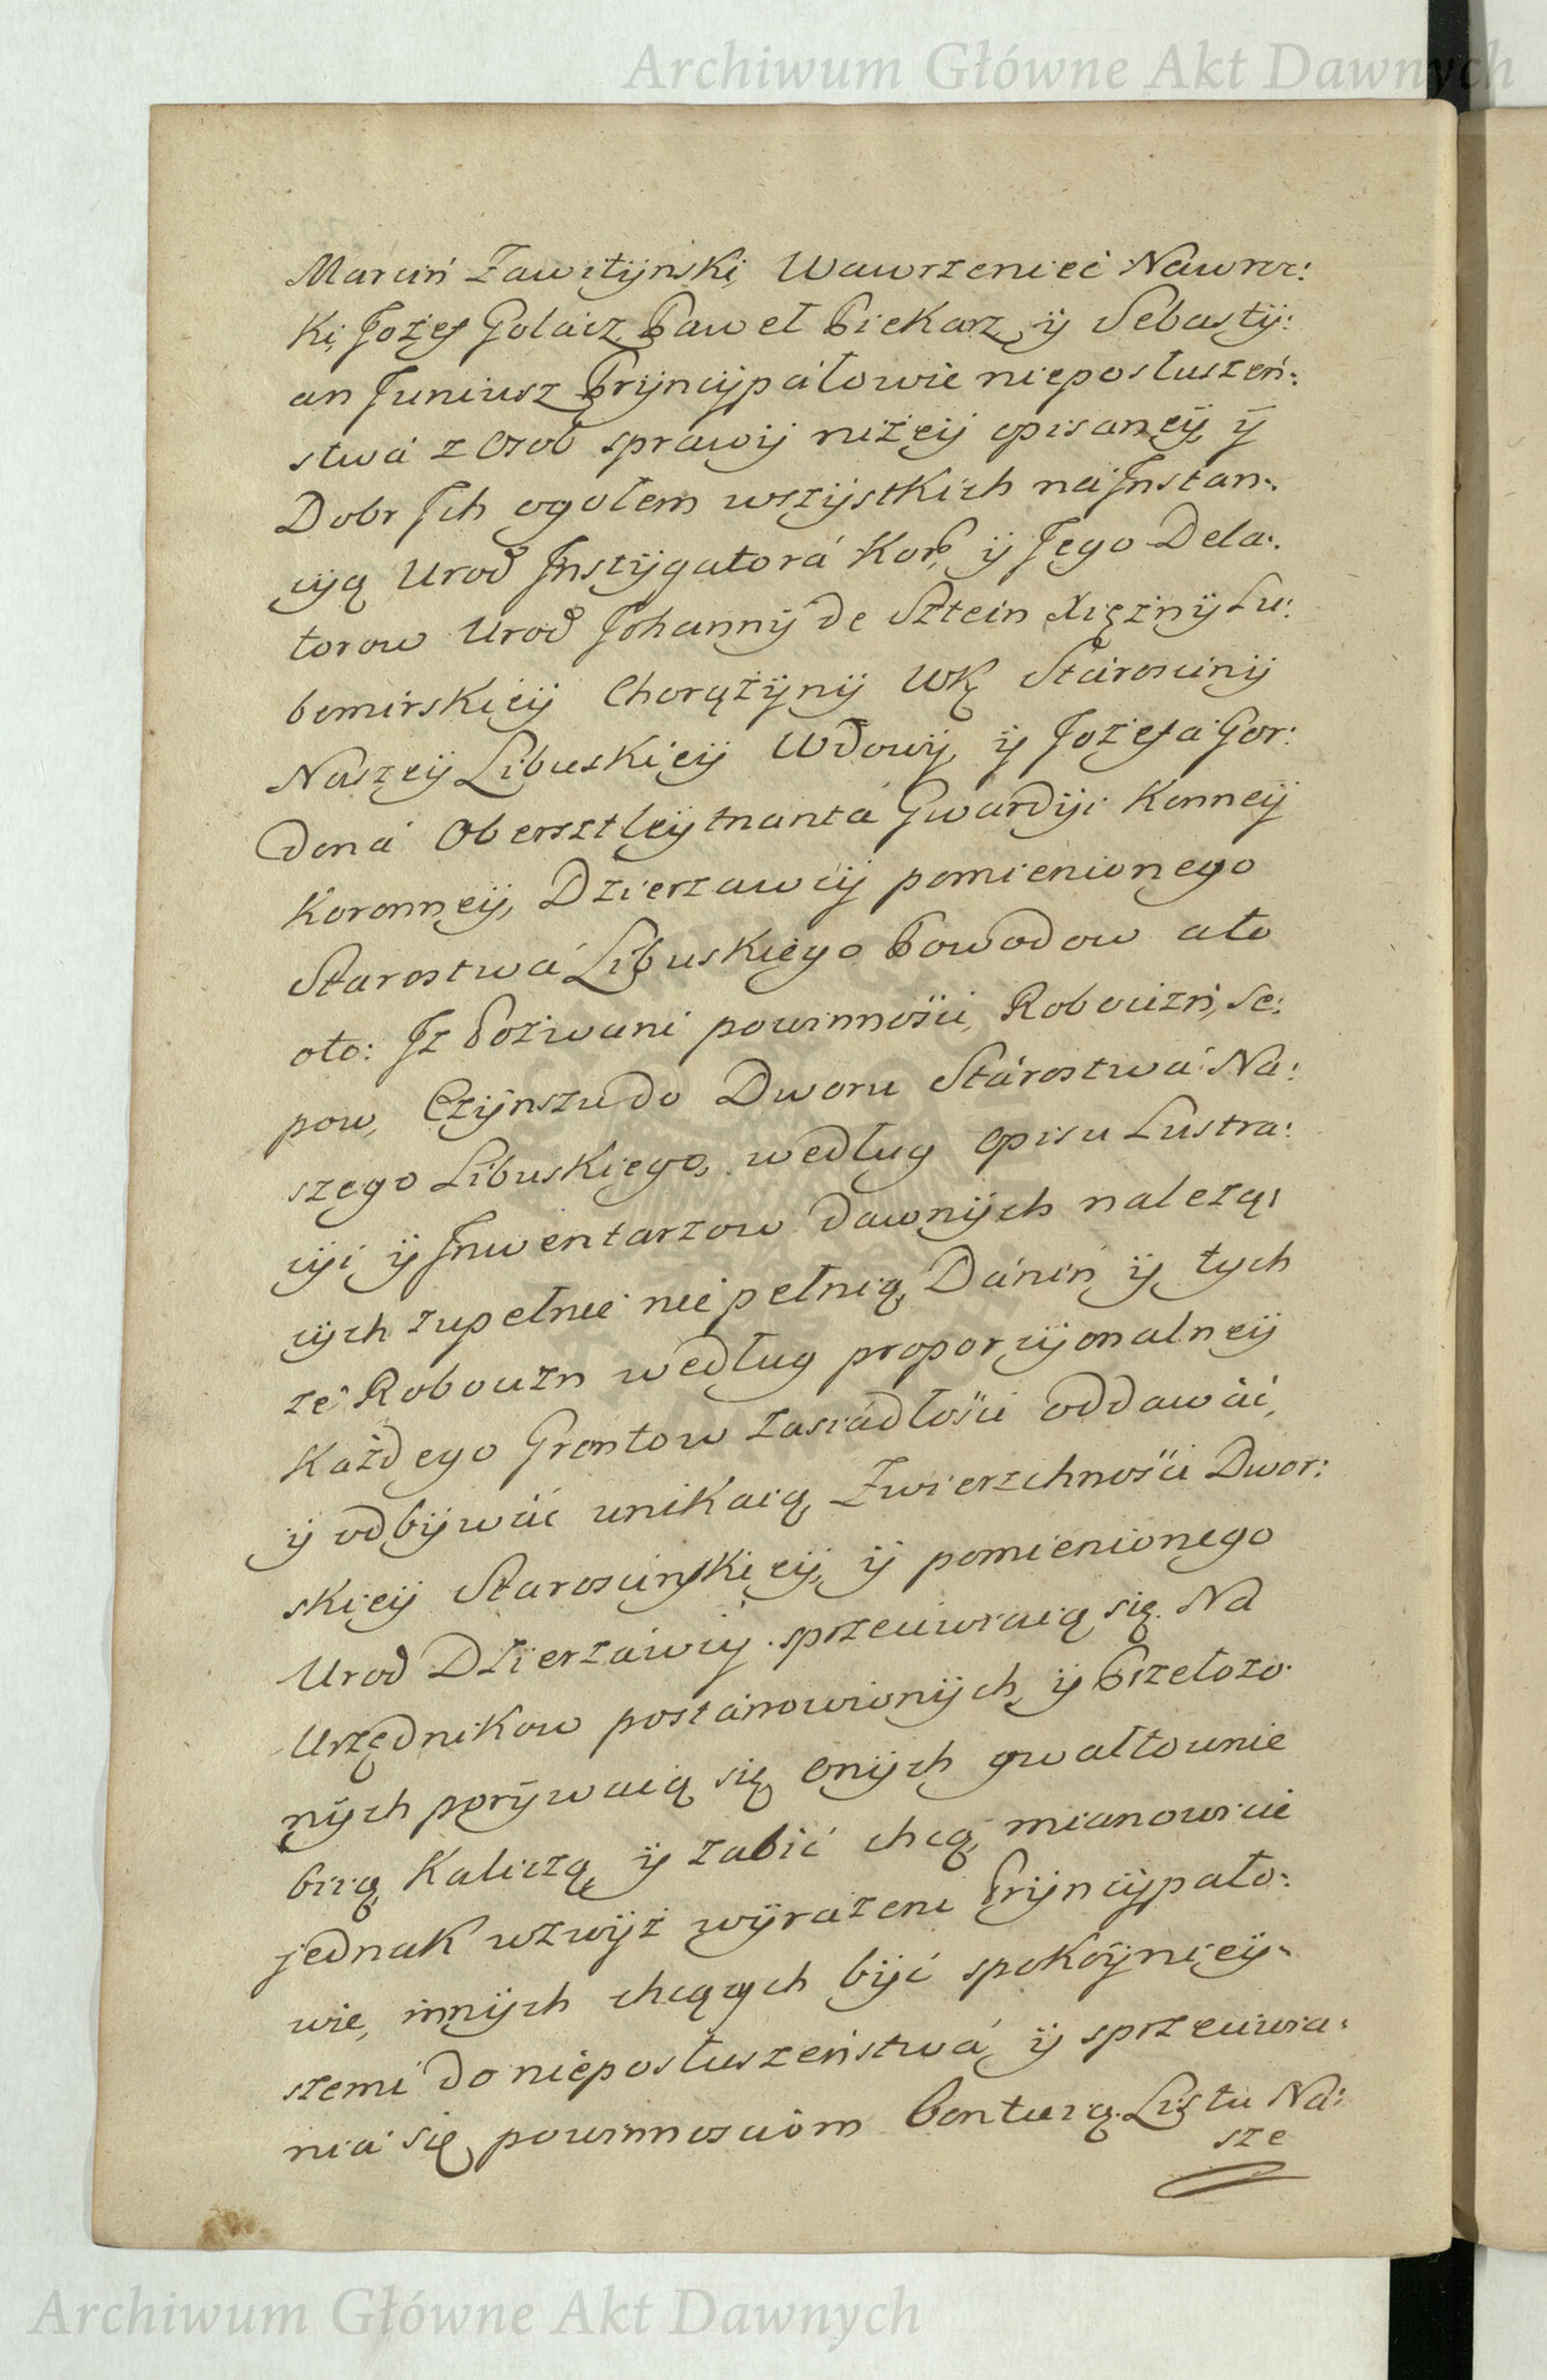 Archiwum Główne Akt Dawnych
Marcin Zawiłÿnski, Wawrzeniec Nawroc:
ki, Jozef Golacz, Paweł Piekarz, ÿ Sebastÿ:
an Juniusz Prÿncÿpałowie nieposłuszeń:
stwa z Osob sprawÿ niżeÿ opisaneÿ ÿ
Dobr Jch ogołem wszÿstkich na Jnstan:
cÿą Urod Jnstÿgatora Kor, ÿ Jego Dela:
torow Urod Johannÿ de Sztein Xiężnÿ Lu:
bomirskieÿ Chorążÿnÿ WK Staroscinÿ
Naszeÿ Libuskieÿ Wdowÿ, ÿ Jozefa Gor:
dona Obersztleÿtnanta Gwardÿi Konneÿ
Koronneÿ, Dzierzawcÿ pomienionego
Starostwa Libuskiego Powodow ato
oto: Jz Pozwani powinności, Roboczizn, Se:
pow, Czÿnszu do Dworu Starostwa Na:
szego Libuskiego, według opisu Lustra:
cÿi ÿ Jnwentarzow dawnÿch należą:
cÿch zupełnie nie pełnią, Danin ÿ tych
ze Robocizn według proporcÿonalneÿ
Każdego Grontow zasiadłości oddawać,
ÿ odbÿwać unikaią, Zwierzchności Dwor:
skieÿ Staroscinskieÿ, ÿ pomienionego
Urod Dzierzawcÿ sprzeciwiaią się. Na
Urzędnikow postanowionÿch, ÿ Przełożo
nÿch porÿwaią się onÿch gwałtownie
biią, Kaliczą, ÿ zabić chcą, mianowicie
jednak wzwÿż wÿrażeni Prÿncÿpało:
wie, innÿch chcących bÿć spokoÿnieÿ:
szemi do nieposłuszeństwa, ÿ sprzeciwia:
nia się powinnosciom bontuią. Listu Na:
sze
Archiwum Główne Akt Dawnych